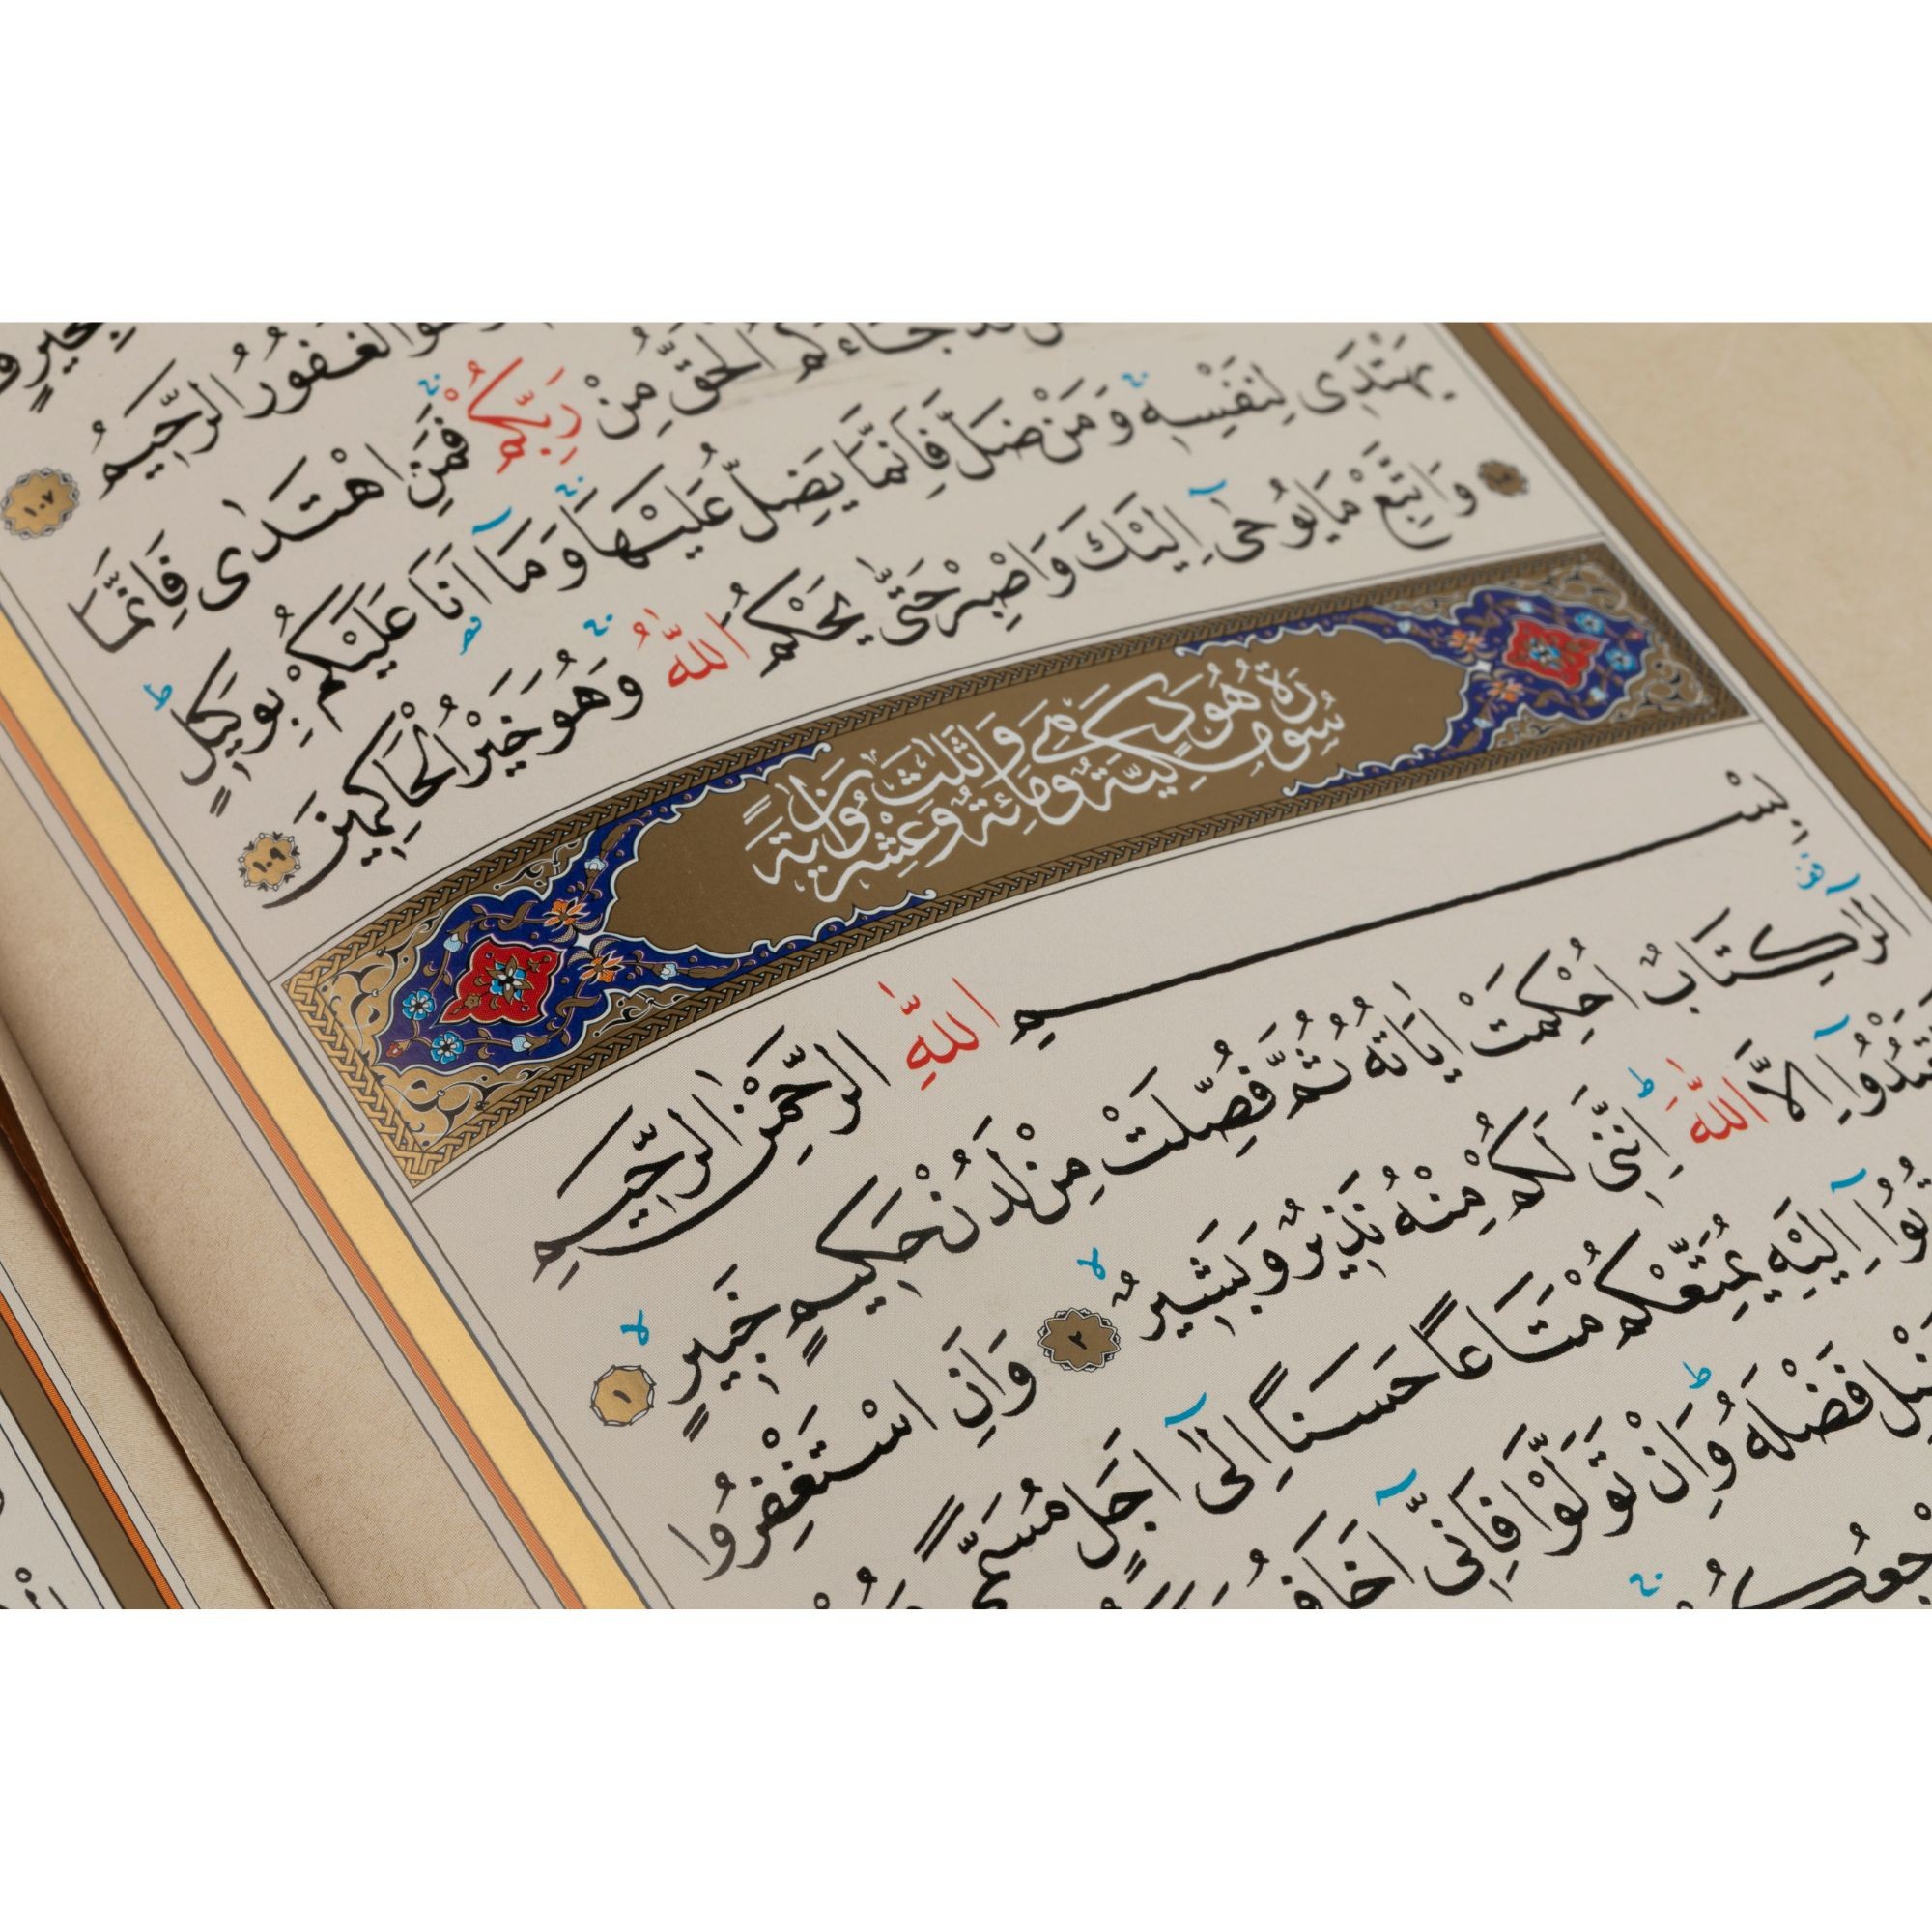 الغفور الرحيم ١٠٧
جاءكم الحق من رَبِّكُمْ فَمَنِ اهْتَدٰى فَاِنَّمَا
يَهْتَدٖى لِنَفْسِهٖ وَمَنْ ضَلَّ فَاِنَّمَا يَضِلُّ عَلَيْهَا وَمَٓا اَنَا عَلَيْكُمْ بِوَكٖيلٍ
وَاتَّبِعْ مَا يُوحٰٓى اِلَيْكَ وَاصْبِرْ حَتّٰى يَحْكُمَ اللّٰهُ وَهُوَ خَيْرُ الْحَاكِمٖينَ ١٠٩
سُورَةُ هُودٍ مَكِّيَّةٌ وَهِىَ مِائَةٌ وَثَلٰثٌ وَعِشْرُونَ اٰيَةً
بِسْمِ اللّٰهِ الرَّحْمٰنِ الرَّحٖيمِ
الٓرٰ كِتَابٌ اُحْكِمَتْ اٰيَاتُهُ ثُمَّ فُصِّلَتْ مِنْ لَدُنْ حَكٖيمٍ خَبٖيرٍ ١
تَعْبُدُٓوا اِلَّا اللّٰهَ اِنَّنٖى لَكُمْ مِنْهُ نَذٖيرٌ وَبَشٖيرٌ ٢ وَاَنِ اسْتَغْفِرُوا
تُوبُٓوا اِلَيْهِ يُمَتِّعْكُمْ مَتَاعًا حَسَنًا اِلٰٓى اَجَلٍ مُسَمًّى
فَضْلَهُ وَاِنْ تَوَلَّوْا فَاِنّٖٓى اَخَافُ